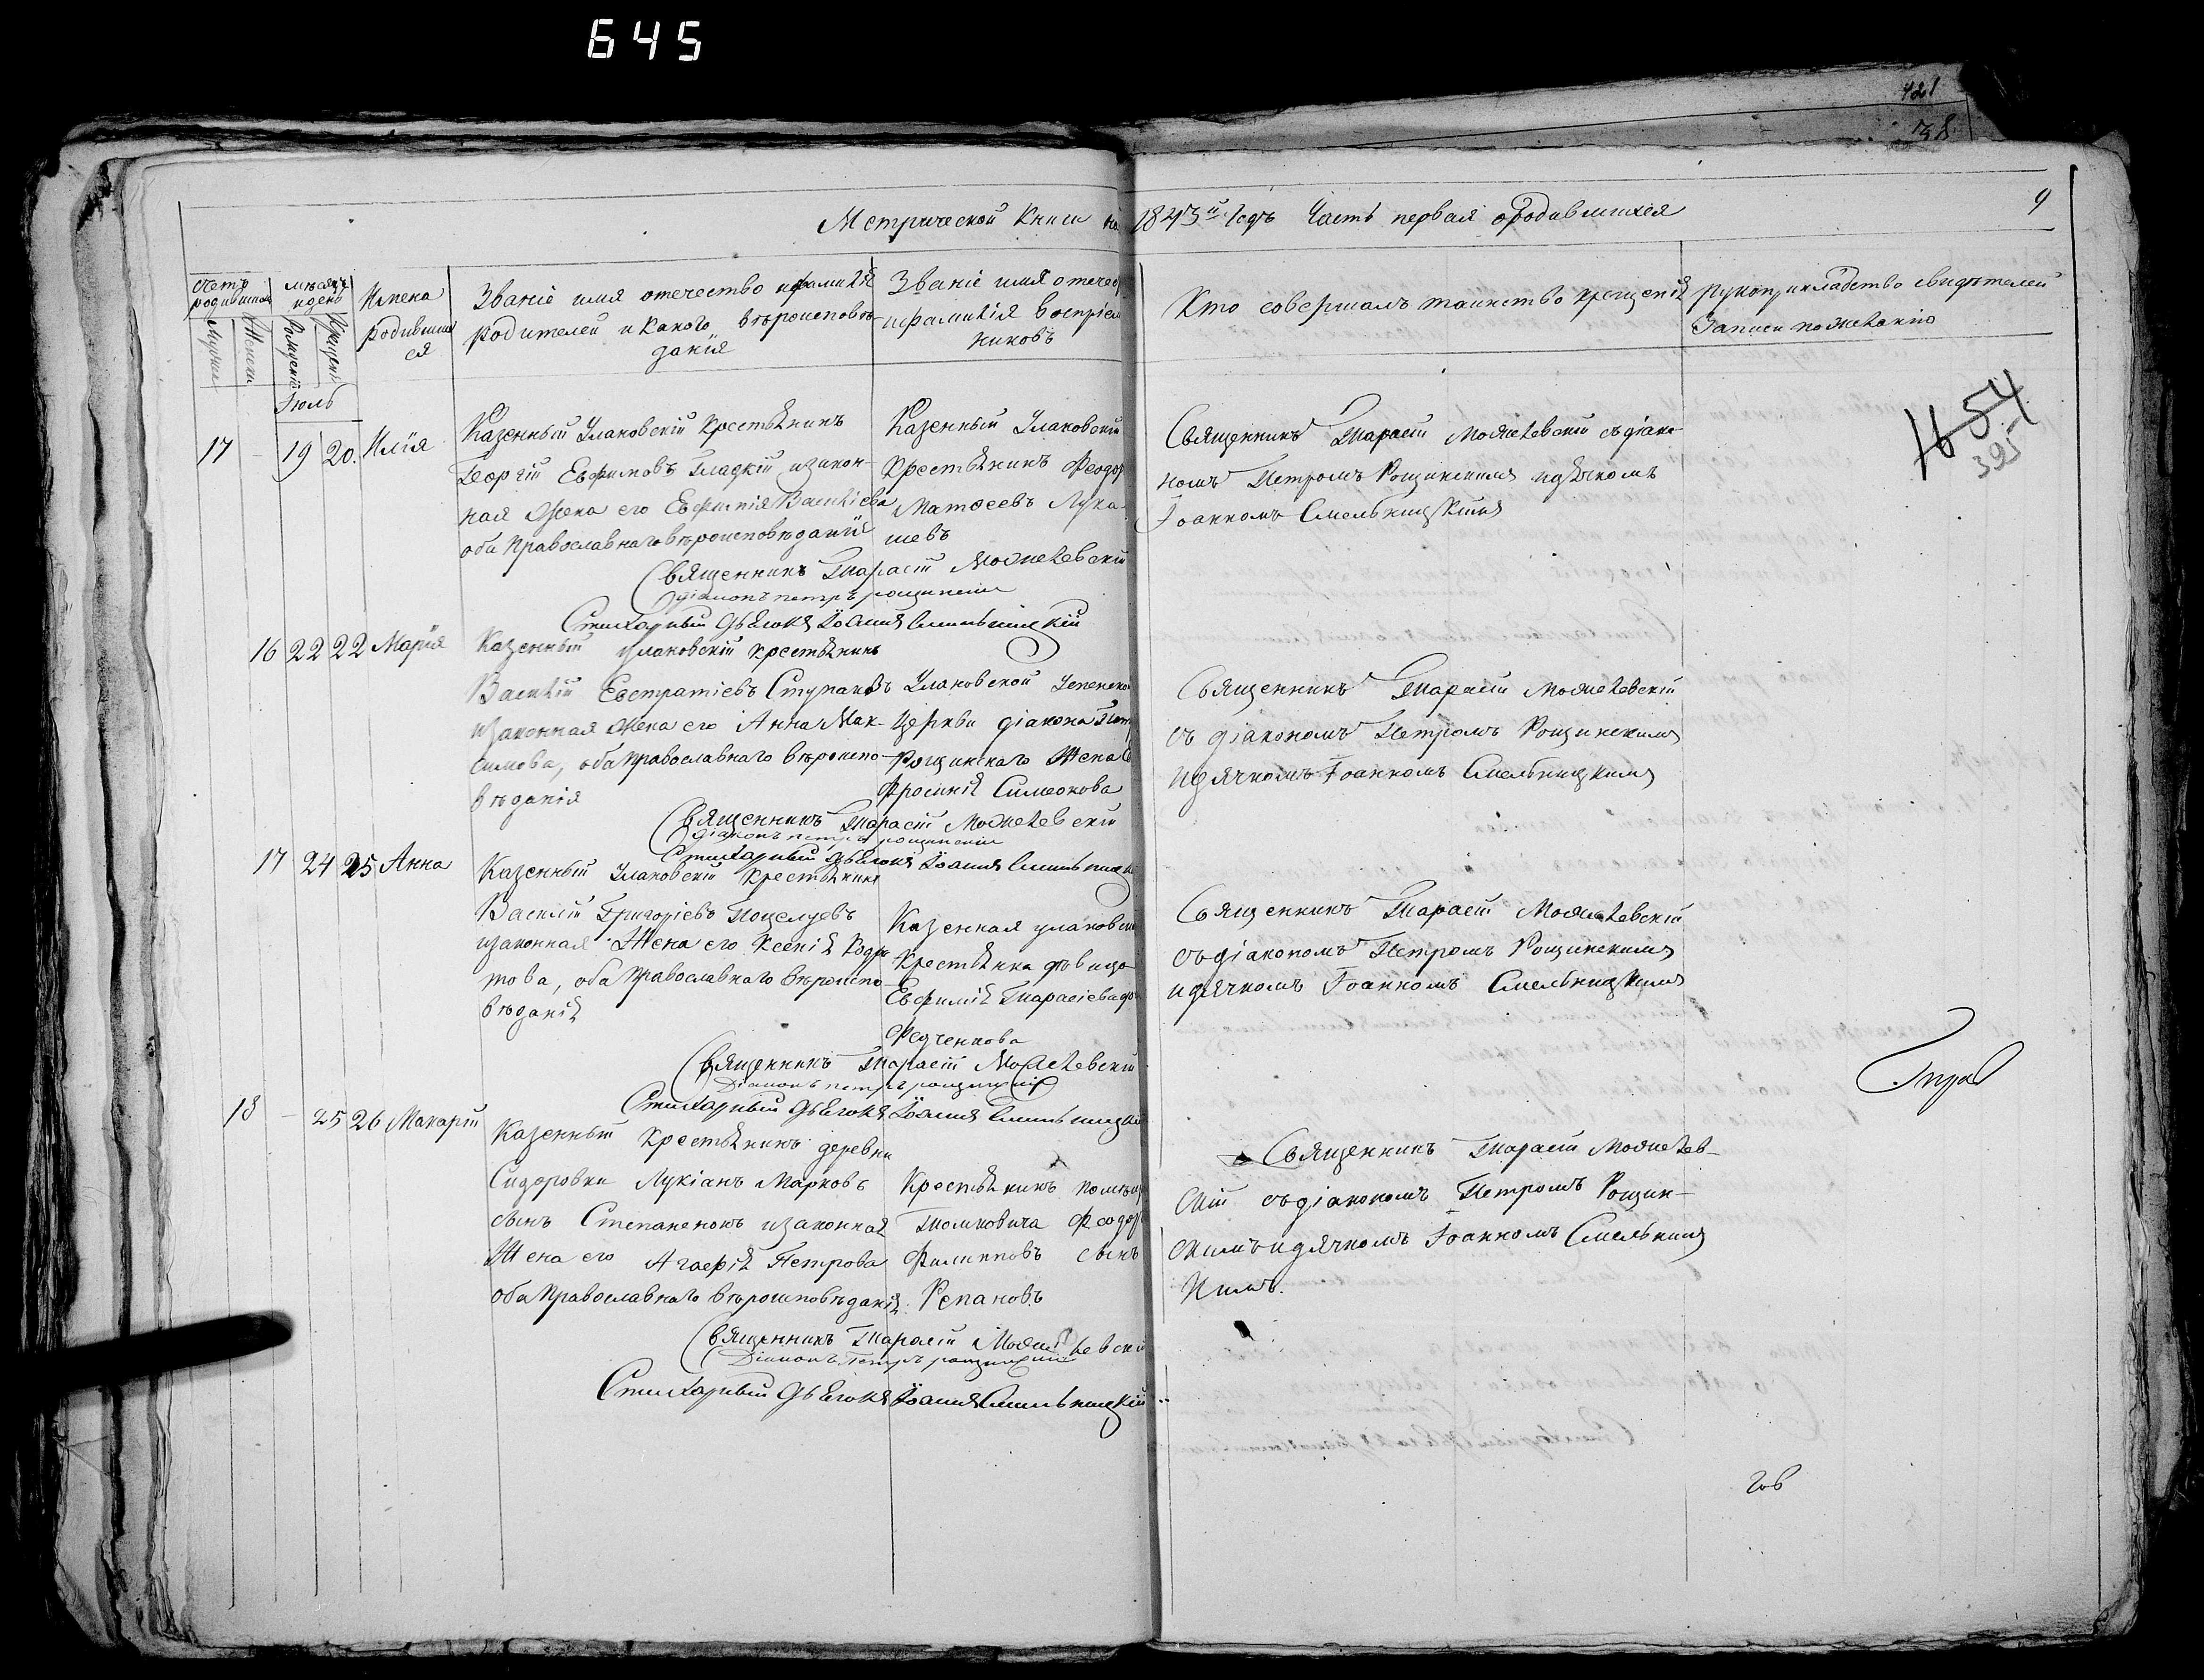 645
421
38
9
Метрической Книги на 1843й Годъ Часть первая о родившихся
Счетъ родившихся
Мужеска
Женска
мѣсяцъ и день
Рожденія
Крещенія
Имена родившихся
Званіе имя отечество и фамилія
родителей и какого вѣроисповѣ-
данія
Званіе имя отечес
и фамилія воспріем
никовъ
Кто совершалъ таинство крещенія
рукоприкладство свидѣтелей
Записи по желанію
Іюль
17 – 19 20. Илія
Казенный Улановскій Крестьянинъ
Георгій Евфимовъ Гладкій и закон-
ная Жена его Евфимія Василіева
оба Православнаго вѣроисповѣданія
Казенный Улановскій
Крестьянинъ Феодор
Матѳеевъ Лука-
шевъ
Священникъ Тарасій Можневскій съ діако-
номъ Петромъ Рощинскимъ и дьячкомъ
Іоанномъ Смельницкимъ
1654
395
Священникъ Тарасій Можневскій
Діаконъ петръ рощинскій
Стихарный Дьячокъ Іоаннъ Смельницкій
16 22 22 Марія
Казенный улановскій крестьянинъ
Василій Евстратіевъ Ступаковъ
и законная Жена его Анна Мак-
симова, оба Православнаго вѣроиспо-
вѣданія
Улановской Успенской
Церкви діакона Петр
Рощинскаго Жена Е
фросинія Симеонова
Священникъ Тарасій Можневскій
съ діакономъ Петромъ Рощинскимъ
и дячкомъ Іоанномъ Смельницкимъ
Священникъ Тарасій Можневскій
Діаконъ петръ рощинскій
Стихарный Дьячокъ Іоаннъ Смельницкі
17 24 25 Анна
Казенный Улановскій Крестьянинъ
Василій Григоріевъ Поцелуевъ
и законная Жена его Ксенія Кодра
това, оба Православнаго вѣроиспо
вѣданія
Казенная улановска
Крестьянка дѣвица
Евфимія Тарасіева до
Федченкова
Священникъ Тарасій Можневскій
съ діакономъ Петромъ Рощинскимъ
и дячкомъ Іоанномъ Смельницкимъ
Священникъ Тарасій Можневскій
Діаконъ петръ рощинскій
Стихарный Дьячокъ Іоаннъ Смельницкій
18 – 25 26 Макарій
Казенный Крестьянинъ деревни
Сидоровки Лукіанъ Марковъ
сынъ Степаненокъ и законная
Жена его Агафія Петрова
оба Православнаго вѣроисповѣданія.
Крестьянинъ помѣщ
Томковича Феодор
Филипповъ сынъ
Репановъ
Священникъ Тарасій Можнев-
скій съ діакономъ Петромъ Рощин-
скимъ и дячкомъ Іоанномъ Смельниц
кимъ.
Священникъ Тарасій Можневскій
Діаконъ Петръ рощинскій
Стихарный Дьячокъ Іоаннъ Смельницкій